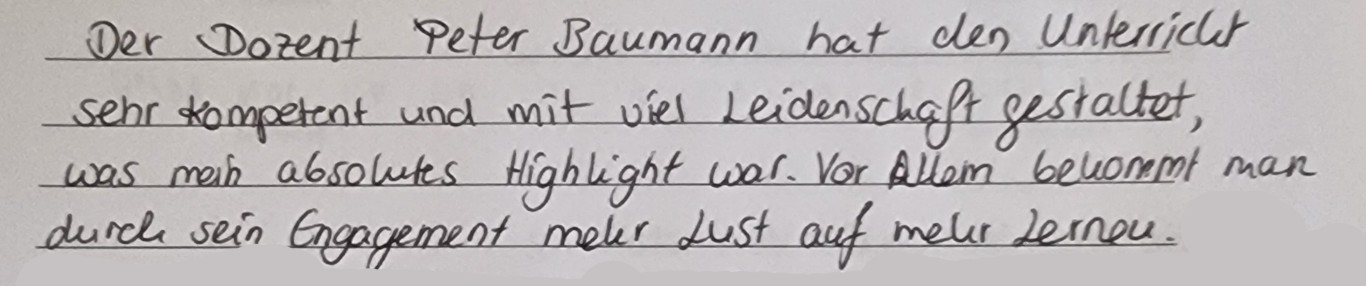 Der Dozent Peter Baumann hat den Unterricht
sehr kompetent und mit viel Leidenschaft gestaltet,
was mein absolutes Highlight war. Vor Allem bekommt man
durch sein Engagement mehr Lust auf mehr Lernen.